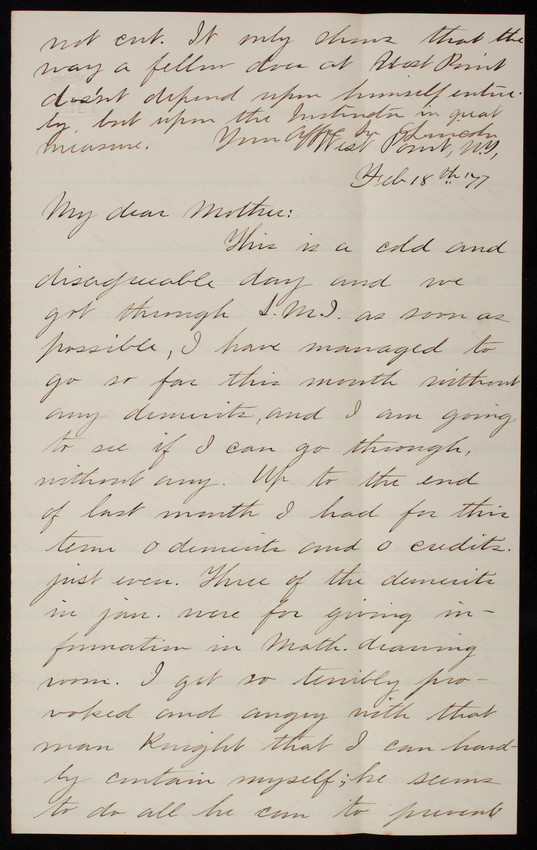 not cut. It only shows that the
way a fellow does at West Point
does'nt depend upon himself entire-
ly, but upon the Instructor in great
measure. Your Affte
West Point, N.Y,
Feb 18th '77
My dear Mother:
This is a cold and
disagreeable day and we
got through S.M.I. as soon as
possible, I have managed to
go so far this month without
any demerits, and I am going
to see if I can go through,
without any. Up to the end
of last month I had for this
term 0 demerits and 0 credits.
just even. Three of the demerits
in jan. were for giving in-
formation in Math. drawing
room. I get so terribly pro-
voked and angry with that
man Knight that I can hard-
ly contain myself; he seems
to do all he can to prevent